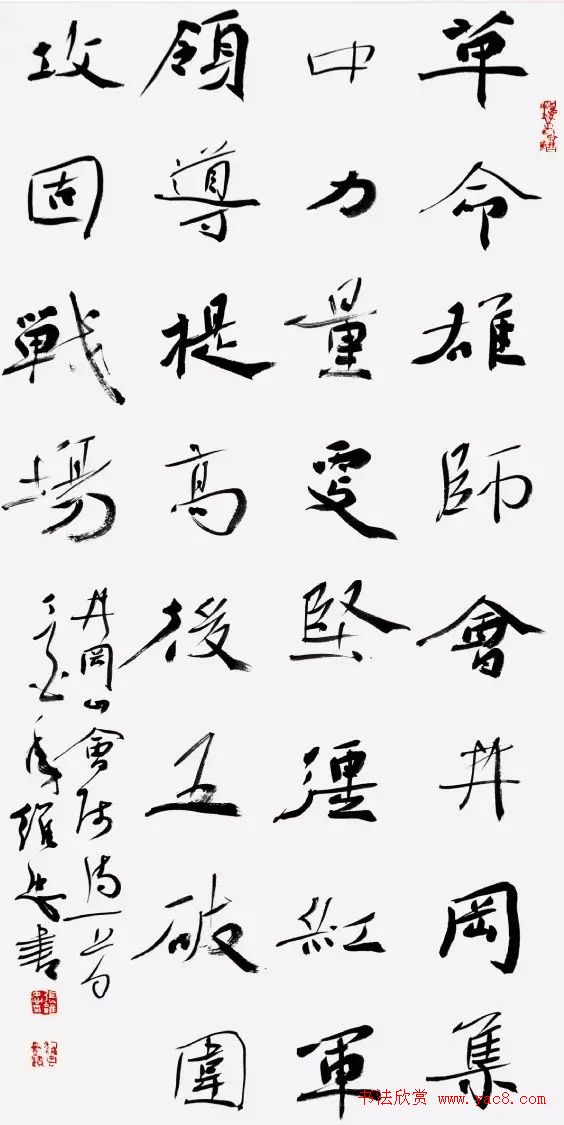 革命雄師會井岡集
中力量更堅彊紅軍
領導提高後五破圍
攻固戰場
井岡山會師詩一首
年維忠書
书法欣赏 www.yac8.com